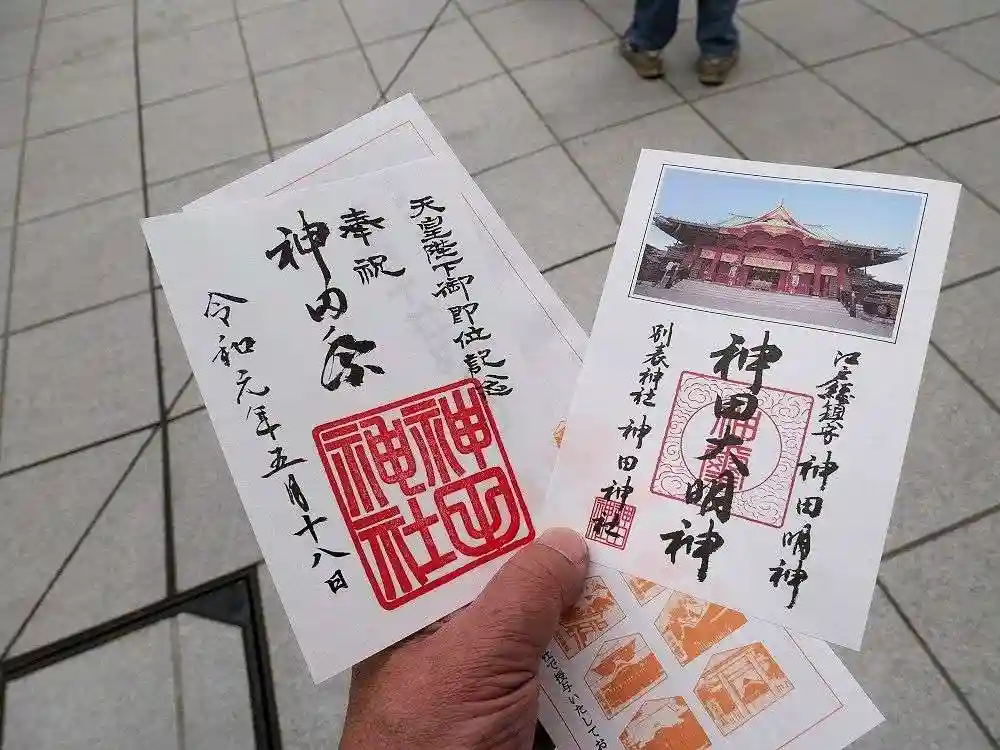 天皇陛下御即位記念
奉祝
神田祭
令和元年五月十八日
神田
神社
江戸総鎮守 神田明神
神田大明神
別表神社 神田神社
社で授与いたしてお